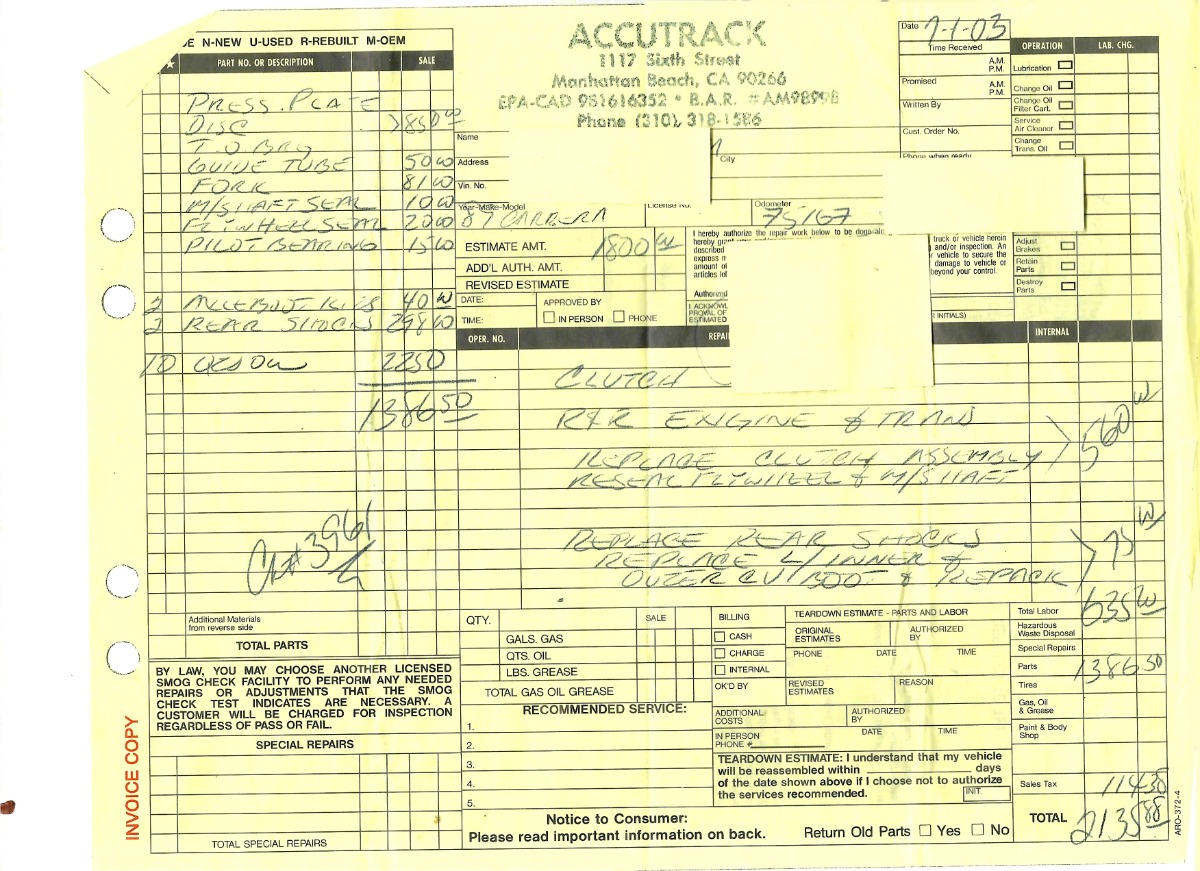 DE N-NEW U-USED R-REBUILT M-OEM
PART NO. OR DESCRIPTION SALE
PRESS. PLATE
DISC >850 00
T.O BRG
GUIDE TUBE 50 00
FORK 81 00
M/SHAFT SEAL 10 00
FLYWHEEL SEAL 20 00
PILOT BEARING 15 00
2 40 00
2 REAR SHOCKS 298 00
10 22 50
1386 50
CK# 3961
Additional Materials
from reverse side
TOTAL PARTS
BY LAW, YOU MAY CHOOSE ANOTHER LICENSED
SMOG CHECK FACILITY TO PERFORM ANY NEEDED
REPAIRS OR ADJUSTMENTS THAT THE SMOG
CHECK TEST INDICATES ARE NECESSARY. A
CUSTOMER WILL BE CHARGED FOR INSPECTION
REGARDLESS OF PASS OR FAIL.
SPECIAL REPAIRS
TOTAL SPECIAL REPAIRS
INVOICE COPY
ACCUTRACK
1117 Sixth Street
Manhattan Beach, CA 90266
EPA-CAD 981616352 • B.A.R. #AM98998
Phone (310) 318-1586
Date 7-1-03
Time Received
A.M.
P.M.
Promised
A.M.
P.M.
Written By
Cust. Order No.
Phone when ready
Name
Address
City
Vin. No.
Year-Make-Model License No. Odometer
87 CARRERA 75167
ESTIMATE AMT. 1800 00
ADD'L AUTH. AMT.
REVISED ESTIMATE
DATE: APPROVED BY
TIME: IN PERSON PHONE
I hereby authorize the repair work below to be done
hereby grant
described
express
amount of
articles
Authorized
I ACKNOWL
PROVAL OF
ESTIMATED
truck or vehicle herein
and/or inspection. An
vehicle to secure the
damage to vehicle or
beyond your control.
INITIALS)
OPERATION LAB. CHG.
Lubrication
Change Oil
Change Oil
Filter Cart.
Service
Air Cleaner
Change
Trans. Oil
Adjust
Brakes
Retain
Parts
Destroy
Parts
OPER. NO. REPAI INTERNAL
CLUTCH
R&R ENGINE & TRANS
REPLACE CLUTCH ASSEMBLY > 560 00
RESEAL FLYWHEEL & M/SHAFT
REPLACE REAR SHOCKS
REPLACE L/INNER & > 75 00
OUTER CV BOOT & REPACK
QTY. SALE
GALS. GAS
QTS. OIL
LBS. GREASE
TOTAL GAS OIL GREASE
RECOMMENDED SERVICE:
1.
2.
3.
4.
5.
Notice to Consumer:
Please read important information on back.
BILLING
CASH
CHARGE
INTERNAL
OK'D BY
ADDITIONAL
COSTS
IN PERSON
PHONE #
TEARDOWN ESTIMATE - PARTS AND LABOR
ORIGINAL
ESTIMATES
AUTHORIZED
BY
PHONE DATE TIME
REVISED
ESTIMATES
REASON
AUTHORIZED
BY
DATE TIME
TEARDOWN ESTIMATE: I understand that my vehicle
will be reassembled within days
of the date shown above if I choose not to authorize
the services recommended.
INIT.
Return Old Parts Yes No
Total Labor 635 00
Hazardous
Waste Disposal
Special Repairs
Parts 1386 50
Tires
Gas, Oil
& Grease
Paint & Body
Shop
Sales Tax 114 38
TOTAL 2135 88
ARO-372-4